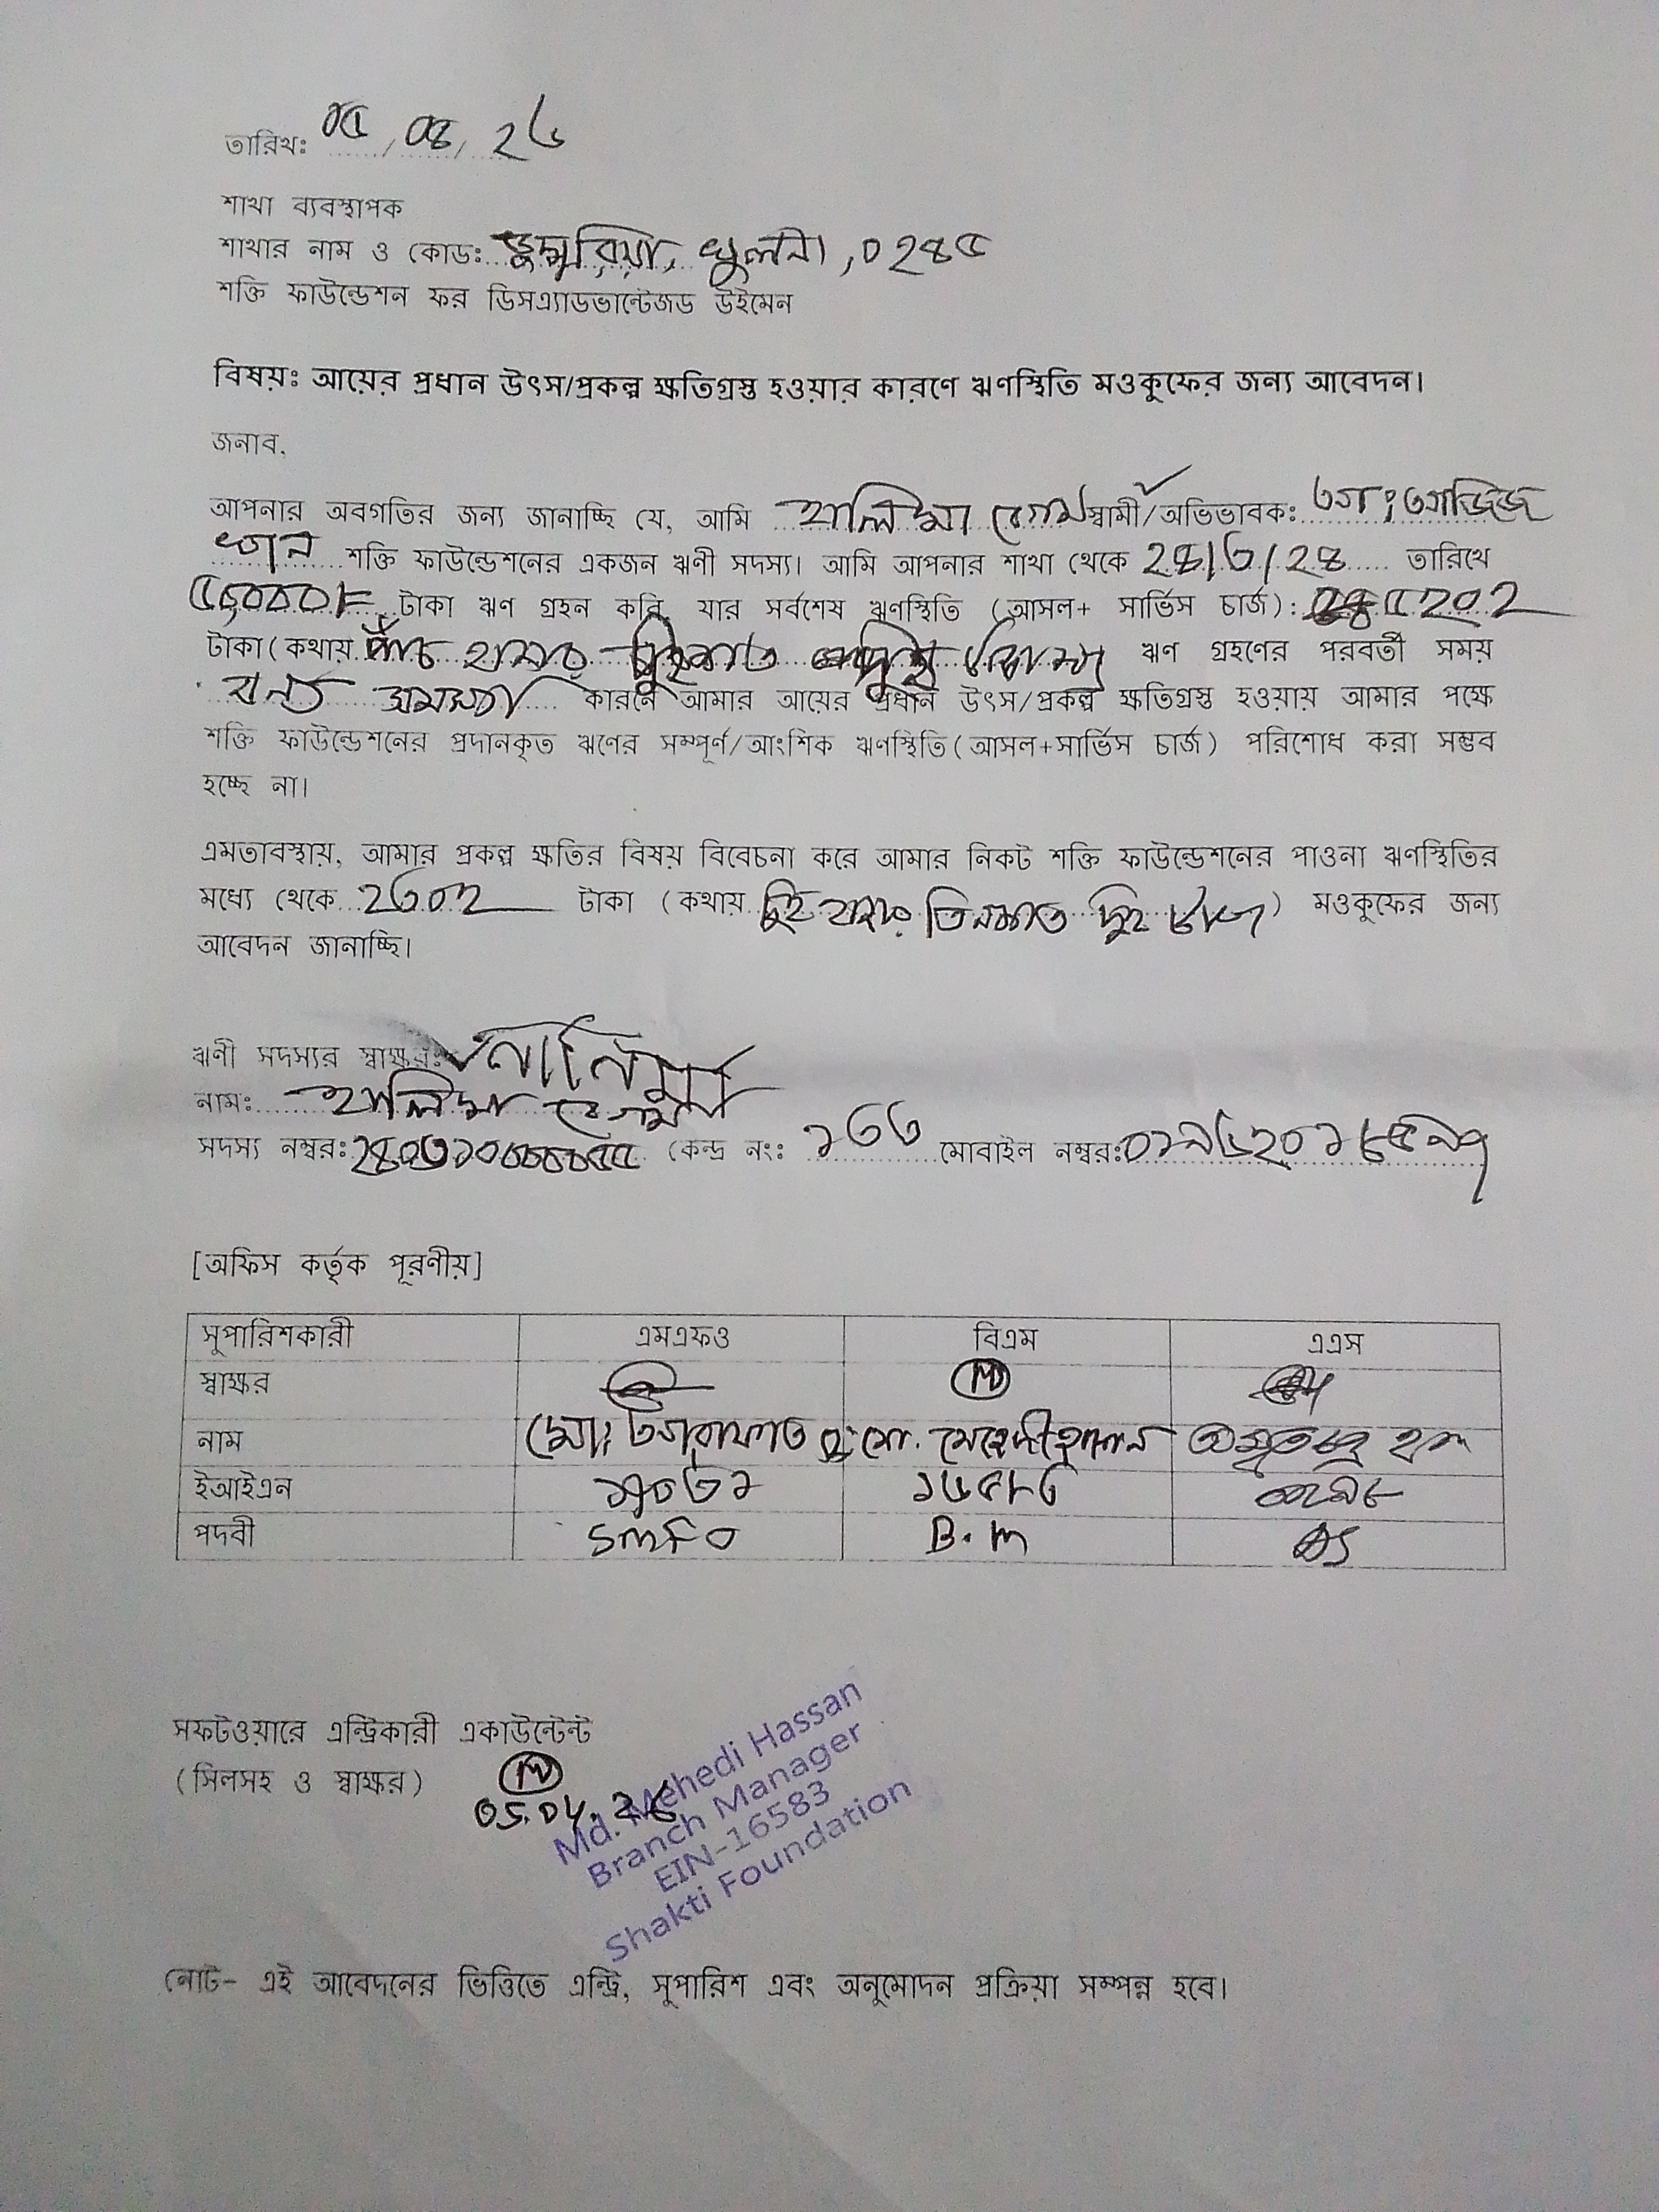 তারিখঃ ০৫/০৪/২৬
শাখা ব্যবস্থাপক
শাখার নাম ও কোডঃ ডুমুরিয়া, খুলনা, ০২৪৫
শক্তি ফাউন্ডেশন ফর ডিসএ্যাডভান্টেজড উইমেন
বিষয়ঃ আয়ের প্রধান উৎস/প্রকল্প ক্ষতিগ্রস্ত হওয়ার কারণে ঋণস্থিতি মওকুফের জন্য আবেদন।
জনাব,
আপনার অবগতির জন্য জানাচ্ছি যে, আমি হালিমা বেগম স্বামী/অভিভাবকঃ
খান শক্তি ফাউন্ডেশনের একজন ঋণী সদস্য। আমি আপনার শাখা থেকে ২৪/৩/২৪ তারিখে
৫০,০০০/= টাকা ঋণ গ্রহন করি, যার সর্বশেষ ঋণস্থিতি (আসল+ সার্ভিস চার্জ): ৫২০২
টাকা(কথায় পাঁচ হাজার দুইশত টাকা ঋণ গ্রহণের পরবর্তী সময়
কারণে আমার আয়ের প্রধান উৎস/প্রকল্প ক্ষতিগ্রস্ত হওয়ায় আমার পক্ষে
শক্তি ফাউন্ডেশনের প্রদানকৃত ঋণের সম্পূর্ণ/আংশিক ঋণস্থিতি(আসল+সার্ভিস চার্জ) পরিশোধ করা সম্ভব
হচ্ছে না।
এমতাবস্থায়, আমার প্রকল্প ক্ষতির বিষয় বিবেচনা করে আমার নিকট শক্তি ফাউন্ডেশনের পাওনা ঋণস্থিতির
মধ্যে থেকে ২৩০২ টাকা (কথায় দুই হাজার তিনশত দুই টাকা) মওকুফের জন্য
আবেদন জানাচ্ছি।
ঋণী সদস্যর স্বাক্ষরঃ হালিমা
নামঃ হালিমা বেগম
সদস্য নম্বরঃ কেন্দ্র নংঃ ১৩৩ মোবাইল নম্বরঃ
[অফিস কর্তৃক পূরণীয়]
সুপারিশকারী এমএফও বিএম এএস
স্বাক্ষর
নাম মোঃ মো. মেহেদী হাসান
ইআইএন ১৬৫৮৩
পদবী SMFO B.M AS
সফটওয়ারে এন্ট্রিকারী একাউন্টেন্ট
(সিলসহ ও স্বাক্ষর)
05.04.26
Md. Mehedi Hassan
Branch Manager
EIN-16583
Shakti Foundation
নোট- এই আবেদনের ভিত্তিতে এন্ট্রি, সুপারিশ এবং অনুমোদন প্রক্রিয়া সম্পন্ন হবে।